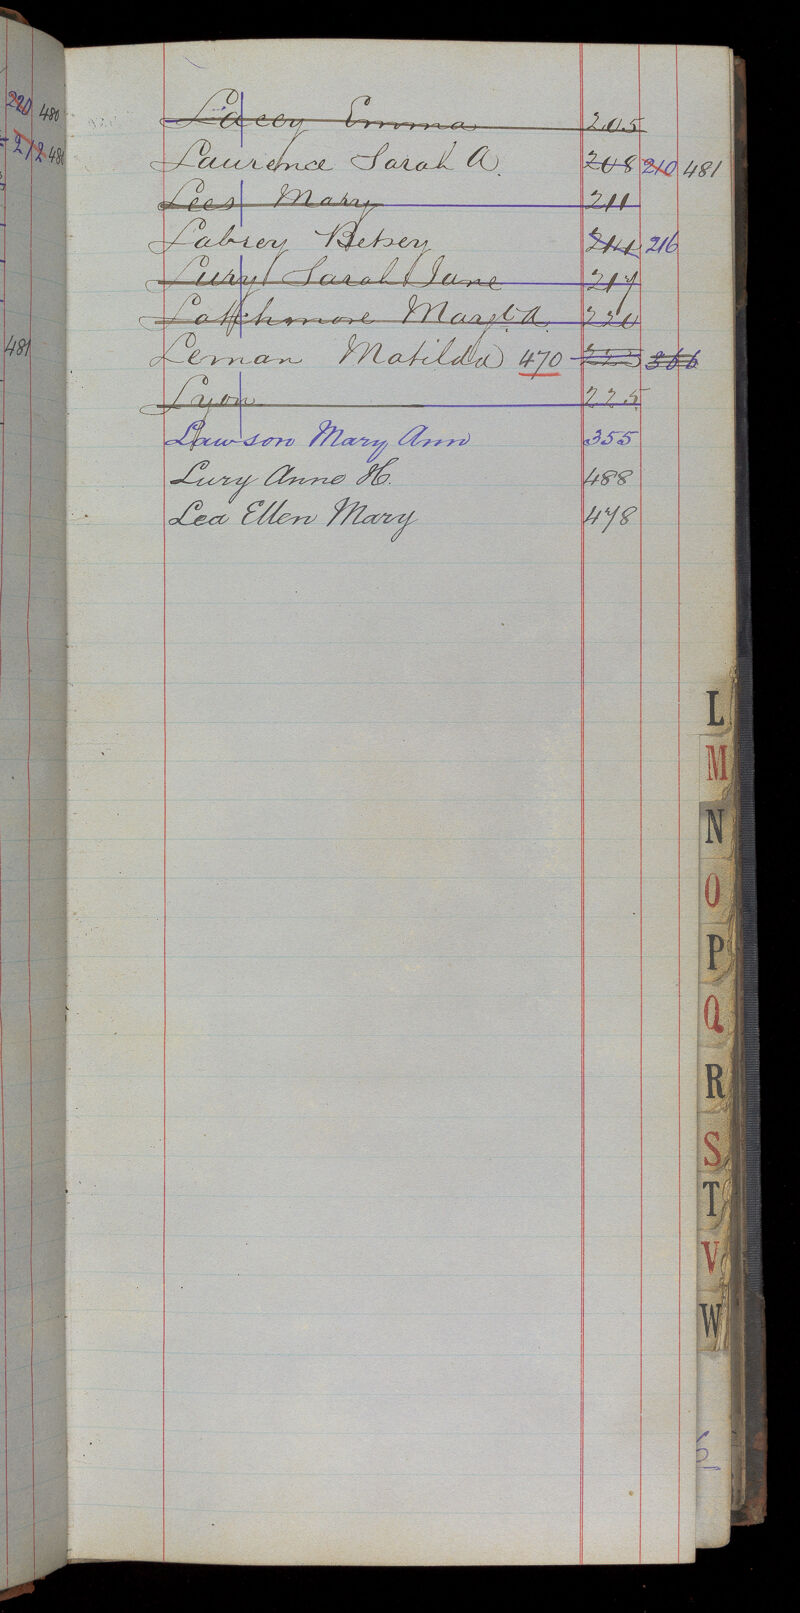 220 480
212 48
481
Lacey Emma 205
Laurence Sarah A. 208 210 481
Lees Mary 211
Labrey Betsey 214 216
Lury Sarah Jane 217
Latchmore Margt. A. 220
Leman Matilda 470 223 366
Lyon 225
Lawson Mary Ann 355
Lury Anne H. 488
Lea Ellen Mary 478
L
M
N
O
P
Q
R
S
T
V
W